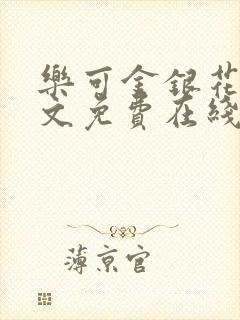 樂可金銀花
文免費在綫
薄京官